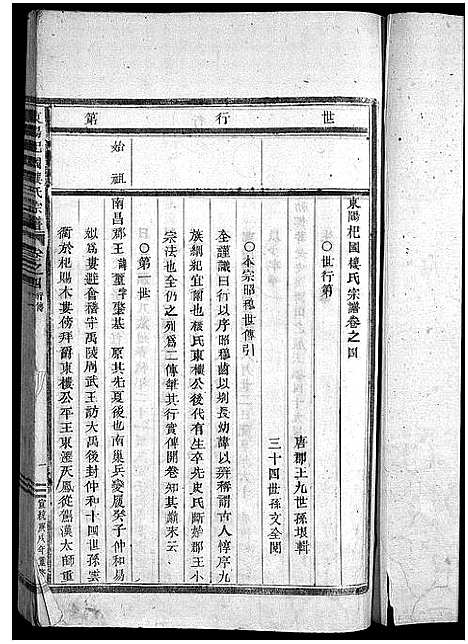 世行第
始祖
東陽杞國樓氏宗譜卷之四
○世行第
唐郡王九世孫垠輯
三十四世孫文全閱
○本宗昭穆世傳引
全謹識曰行以序昭穆齒以別長幼諱以辨稱謂古人惇序九
族綱紀宜爾也樓氏東樓公後代有生卒先史氏斷始郡王小
宗法也全仍之列為工傳華其行實傳開卷知其巔末云
○第一世
南昌郡王 肇基 原其先夏後也南巢兵變履癸子仲和易
姒為婁避會稽守禹陵周武王訪大禹後封仲和十四世孫
衢於杞賜木婁傍拜爵東樓公平王東遷 從儒漢太師重
東陽杞國樓氏宗譜 卷之四 行傳 一